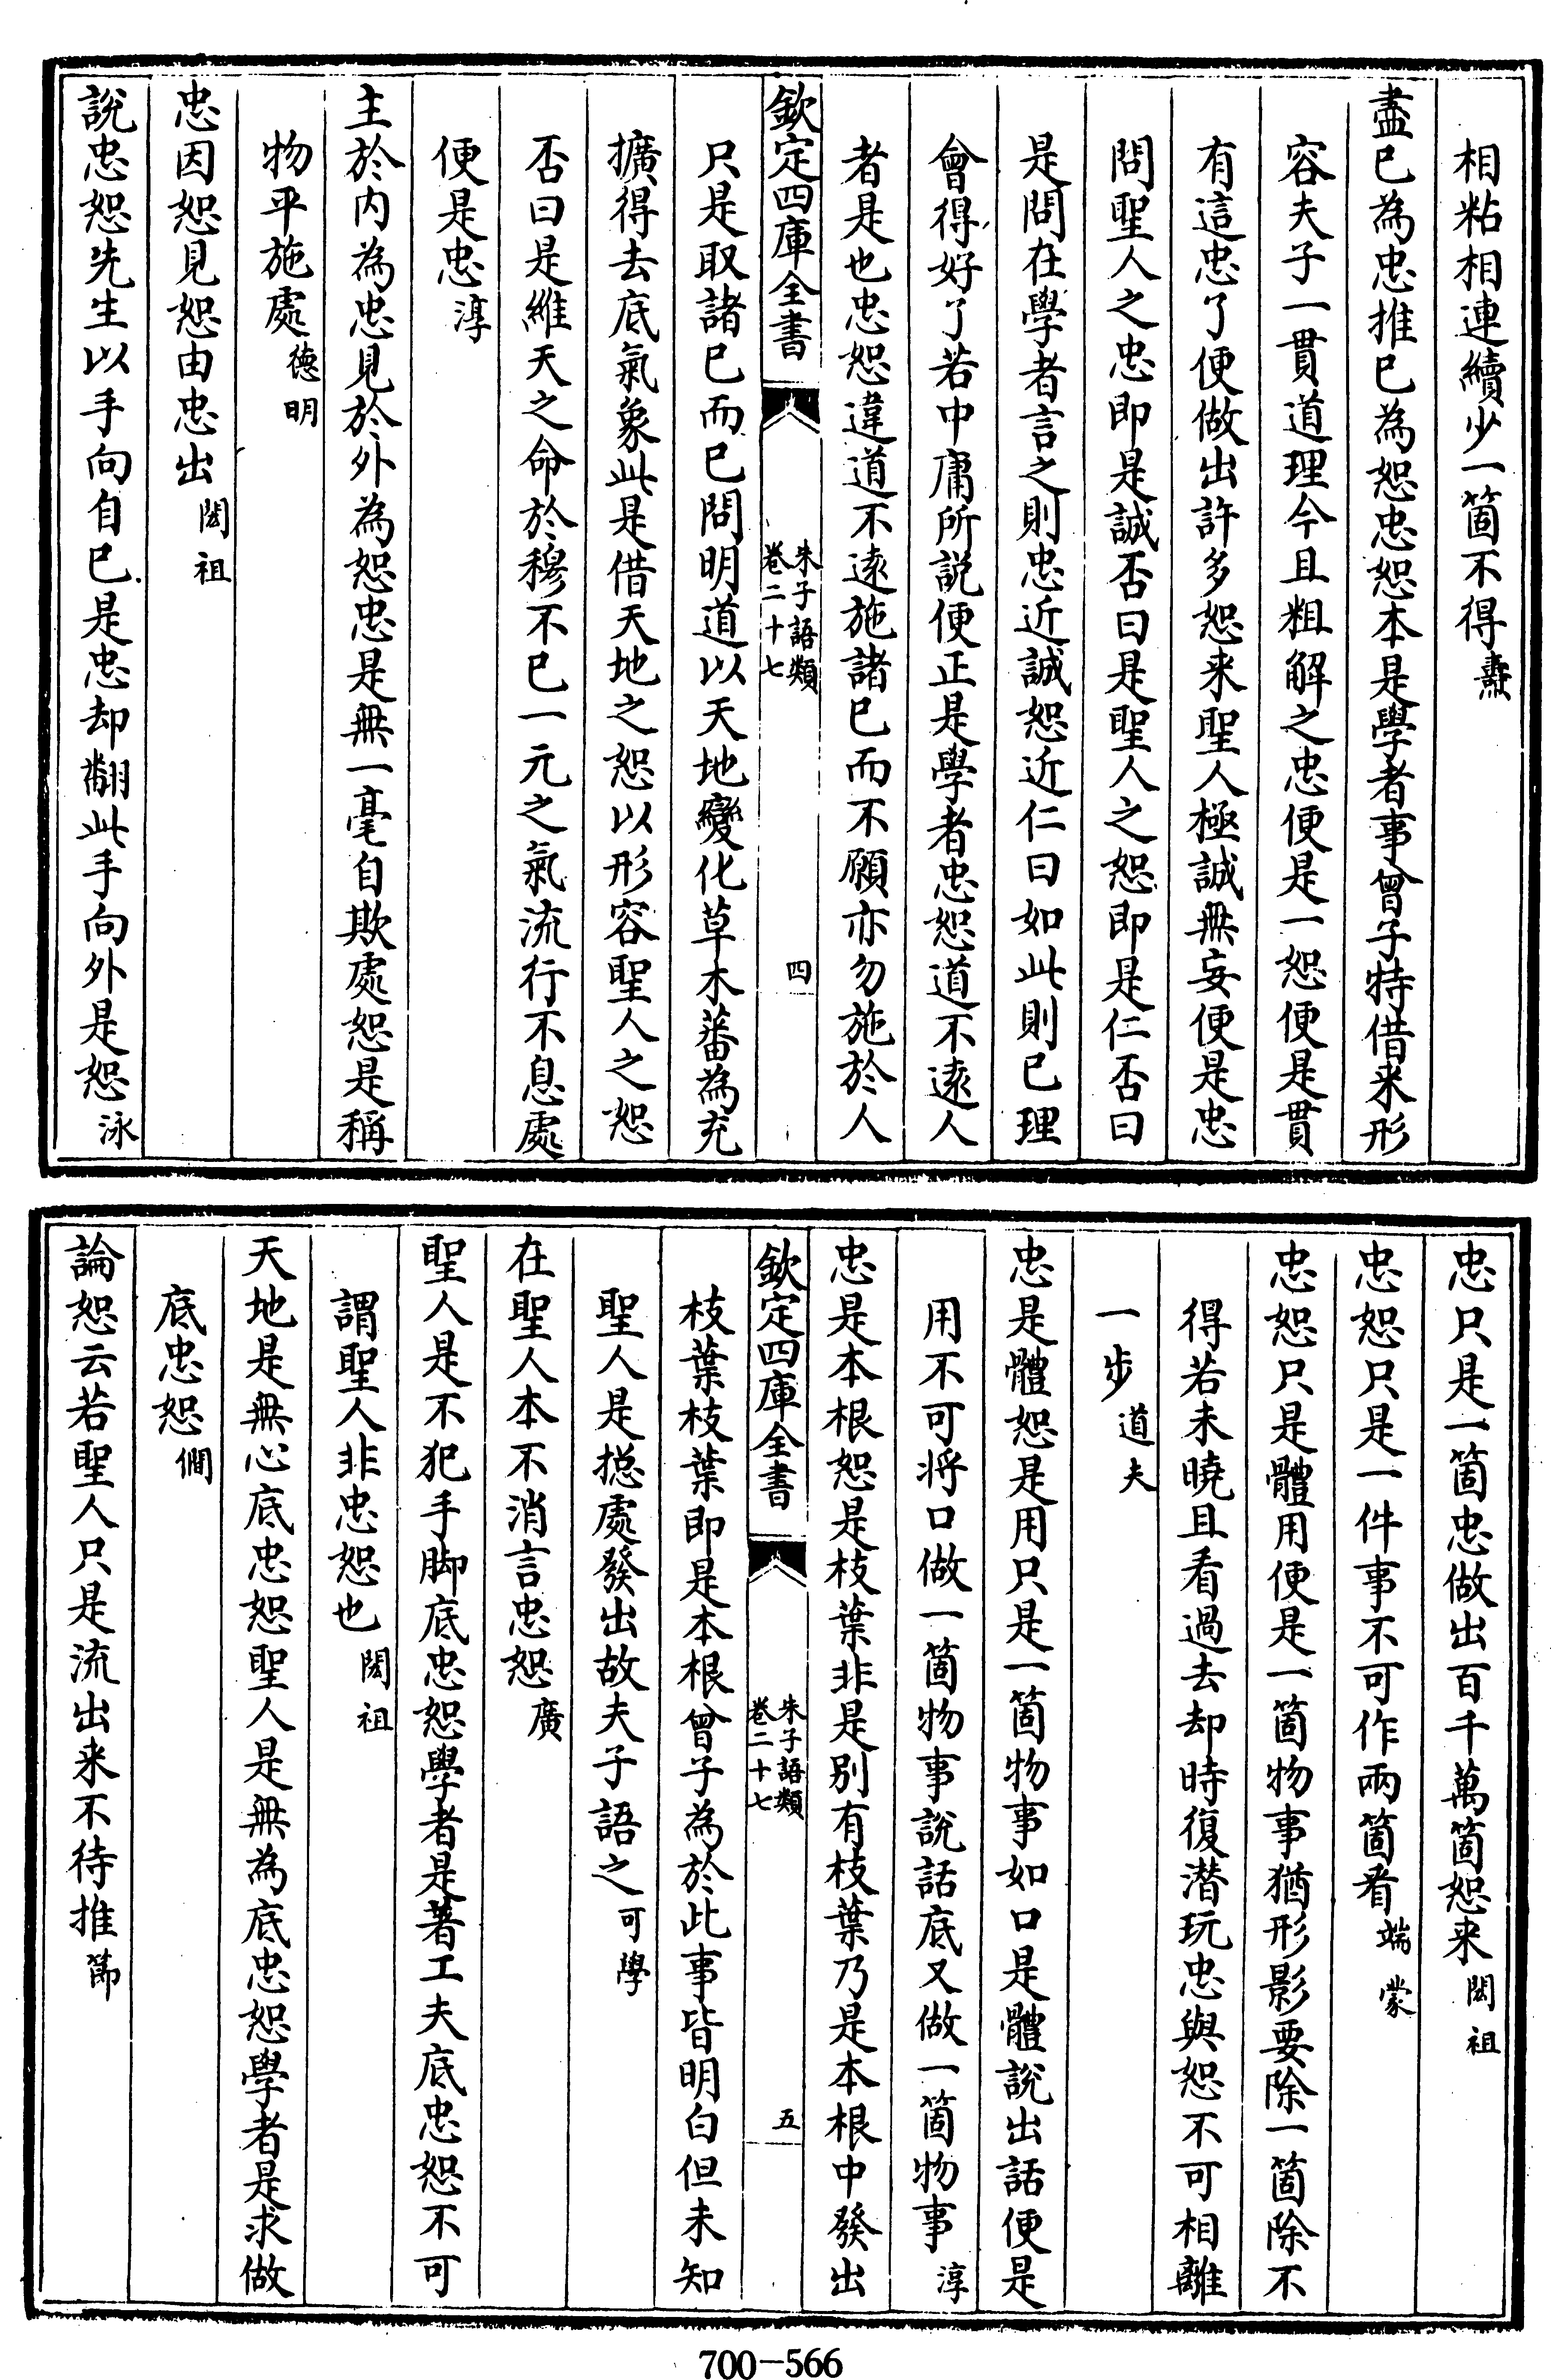 相粘相連續少一箇不得燾
盡已為忠推已為恕忠恕本是學者事曾子特借来形
容夫子一貫道理今且粗解之忠便是一恕便是貫
有這忠了便做出許多恕来聖人極誠無妄便是忠
問聖人之忠即是誠否曰是聖人之恕即是仁否曰
是問在學者言之則忠近誠恕近仁曰如此則已理
會得好了若中庸所説便正是學者忠恕道不逺人
者是也忠恕違道不逺施諸已而不願亦勿施於人
欽定四庫全書
朱子語類
卷二十七
四
只是取諸已而已問明道以天地變化草木蕃為充
擴得去底氣象此是借天地之恕以形容聖人之恕
否曰是維天之命於穆不已一元之氣流行不息處
便是忠淳
主於内為忠見於外為恕忠是無一毫自欺處恕是稱
物平施處德明
忠因恕見恕由忠出閎祖
說忠恕先生以手向自已是忠却翻此手向外是恕泳
忠只是一箇忠做出百千萬箇恕来閎祖
忠恕只是一件事不可作兩箇看端蒙
忠恕只是體用便是一箇物事猶形影要除一箇除不
得若未曉且看過去却時復潜玩忠與恕不可相離
一步道夫
忠是體恕是用只是一箇物事如口是體說出話便是
用不可將口做一箇物事說話底又做一箇物事淳
忠是本根恕是枝葉非是别有枝葉乃是本根中發出
欽定四庫全書
朱子語類
卷二十七
五
枝葉枝葉即是本根曾子為於此事皆明白但未知
聖人是揔處發出故夫子語之可學
在聖人本不消言忠恕廣
聖人是不犯手脚底忠恕學者是著工夫底忠恕不可
謂聖人非忠恕也閎祖
天地是無心底忠恕聖人是無為底忠恕學者是求做
底忠恕僩
論恕云若聖人只是流出来不待推節
700-566